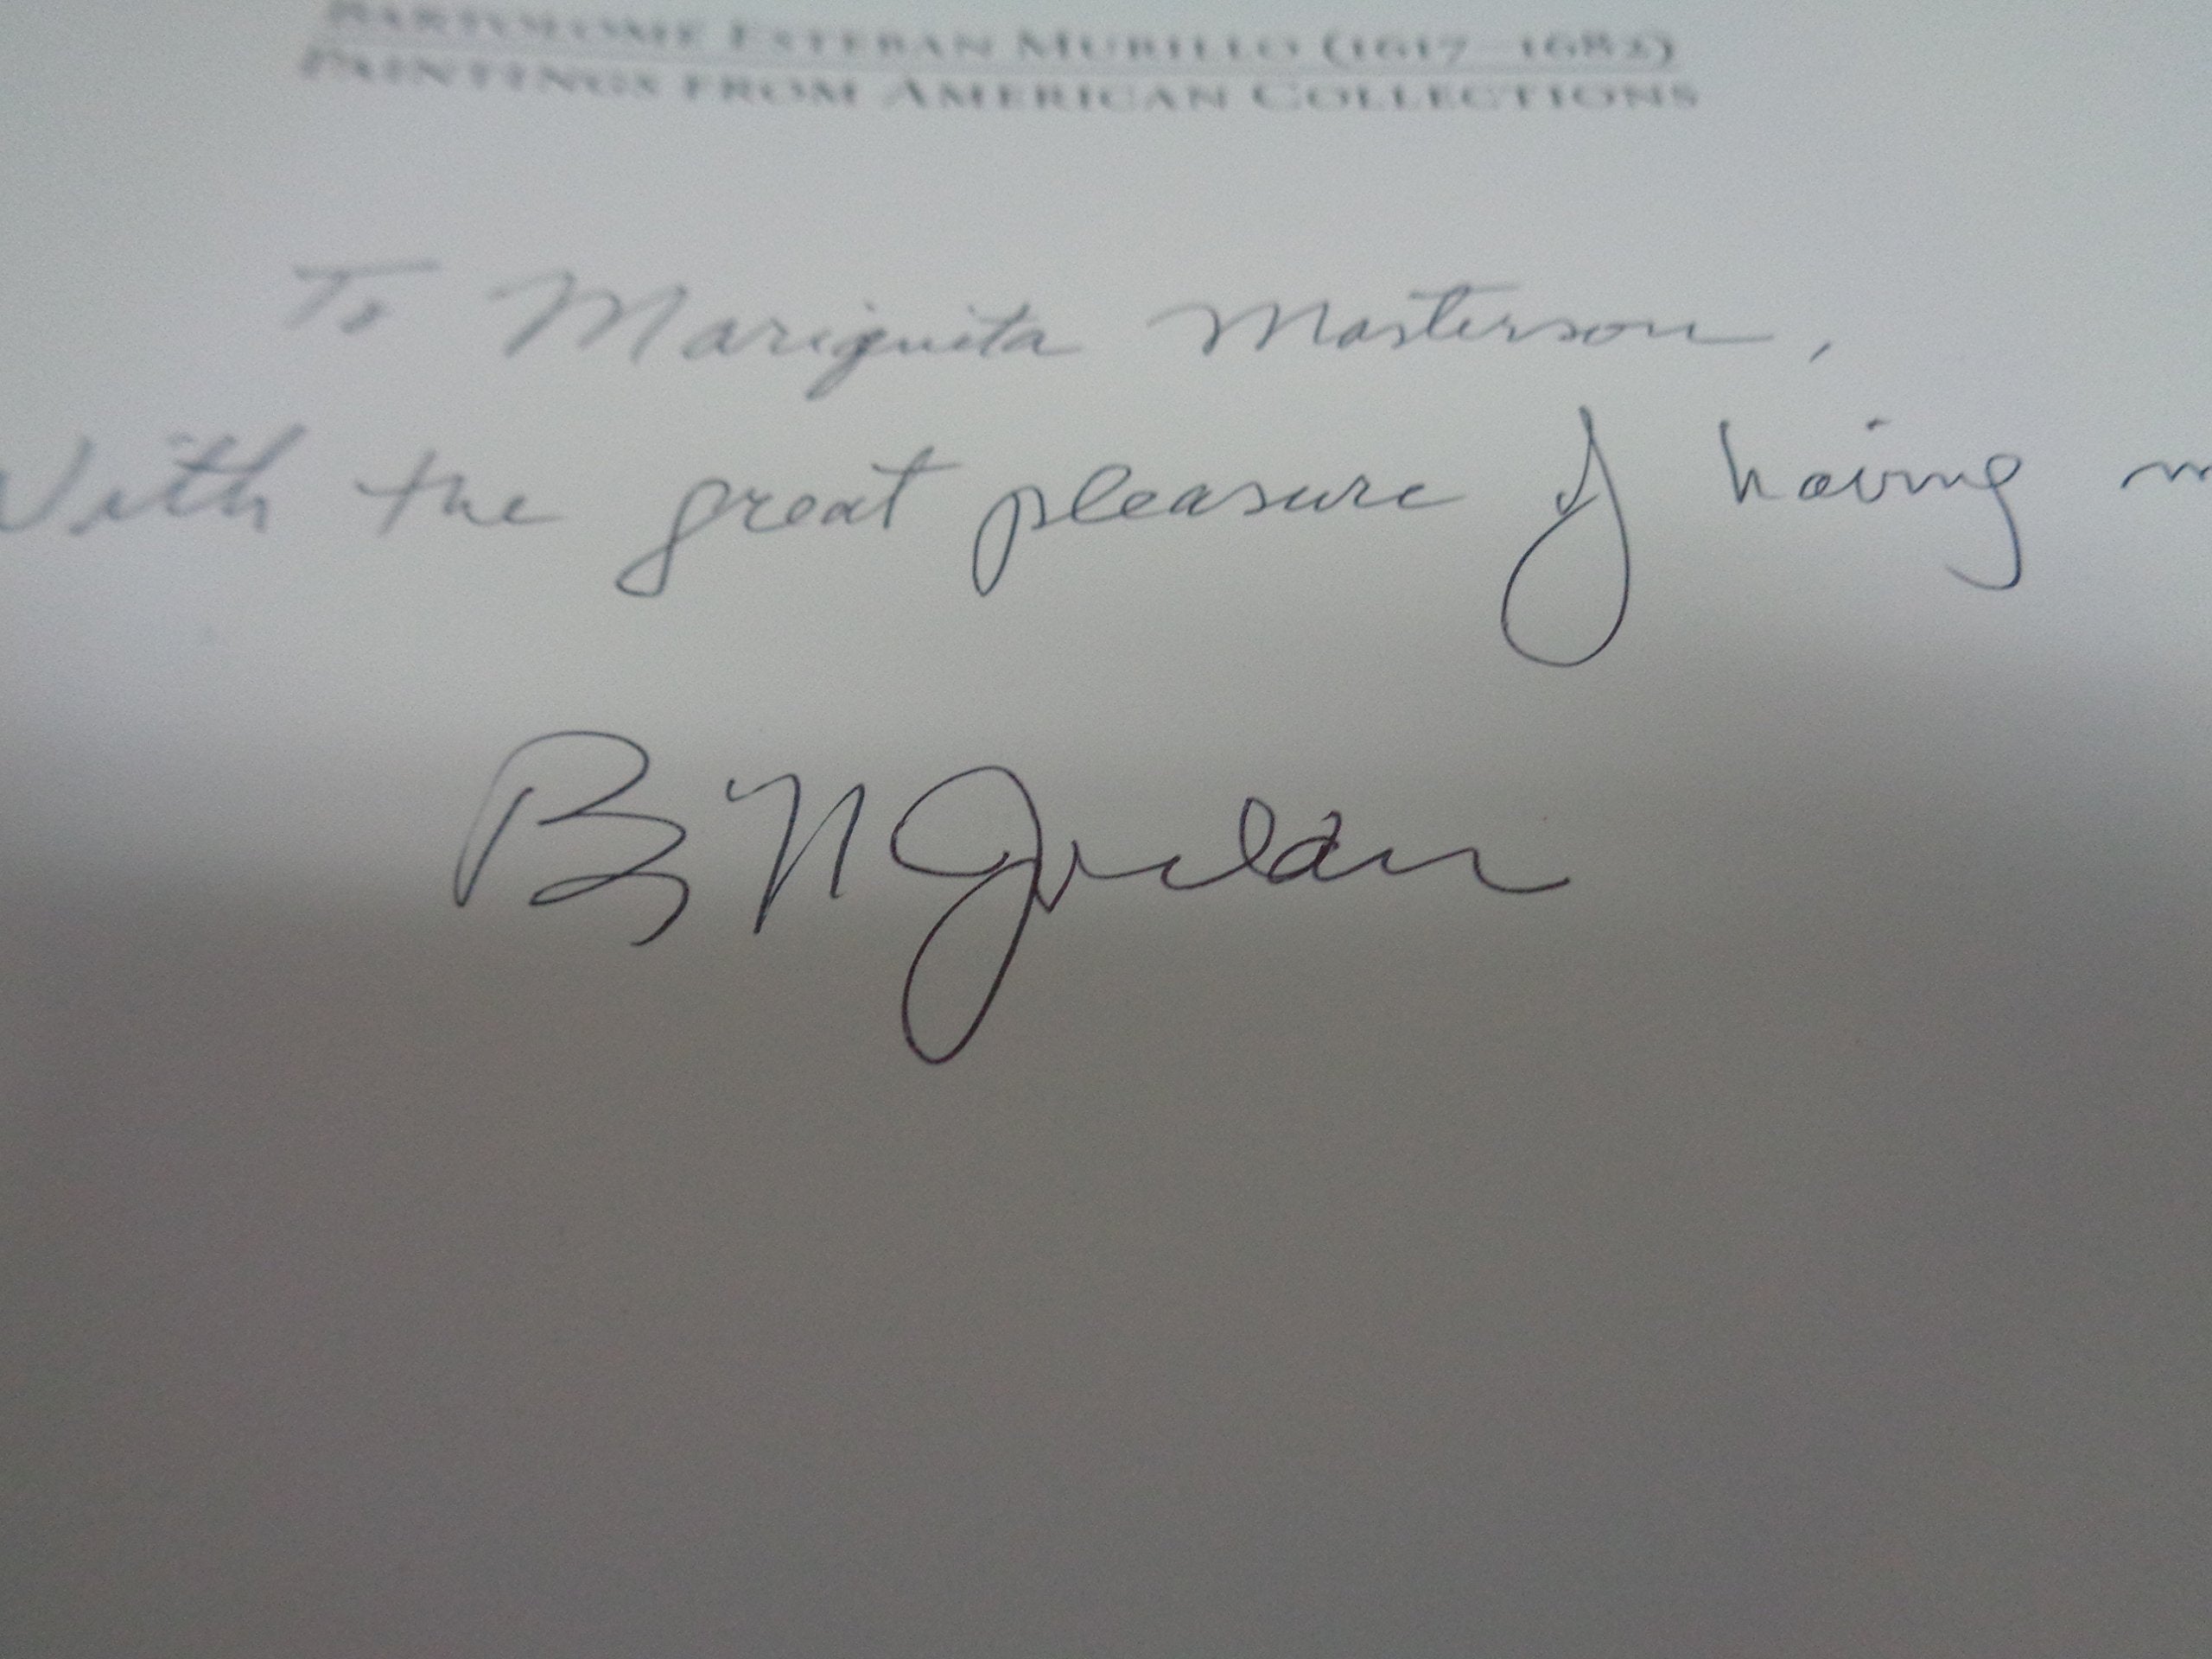 BARTOLOMÉ ESTEBAN MURILLO (1617–1682)
PAINTINGS FROM AMERICAN COLLECTIONS
To Mariquita Masterson,
With the great pleasure of having
B N Jordan